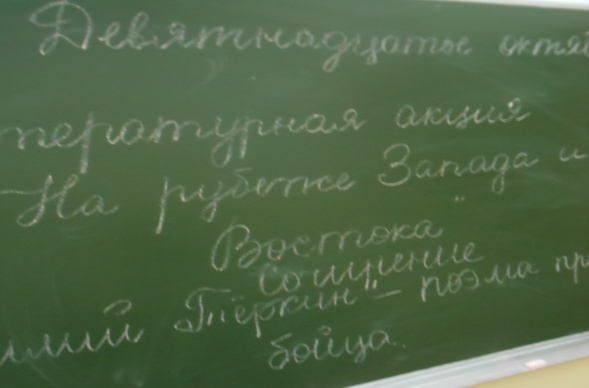 Девятнадцатое октя
тературная акция
На рубеже Запада и
Востока"
Сочинение
"Тёркин" – поэма пр
бойца.